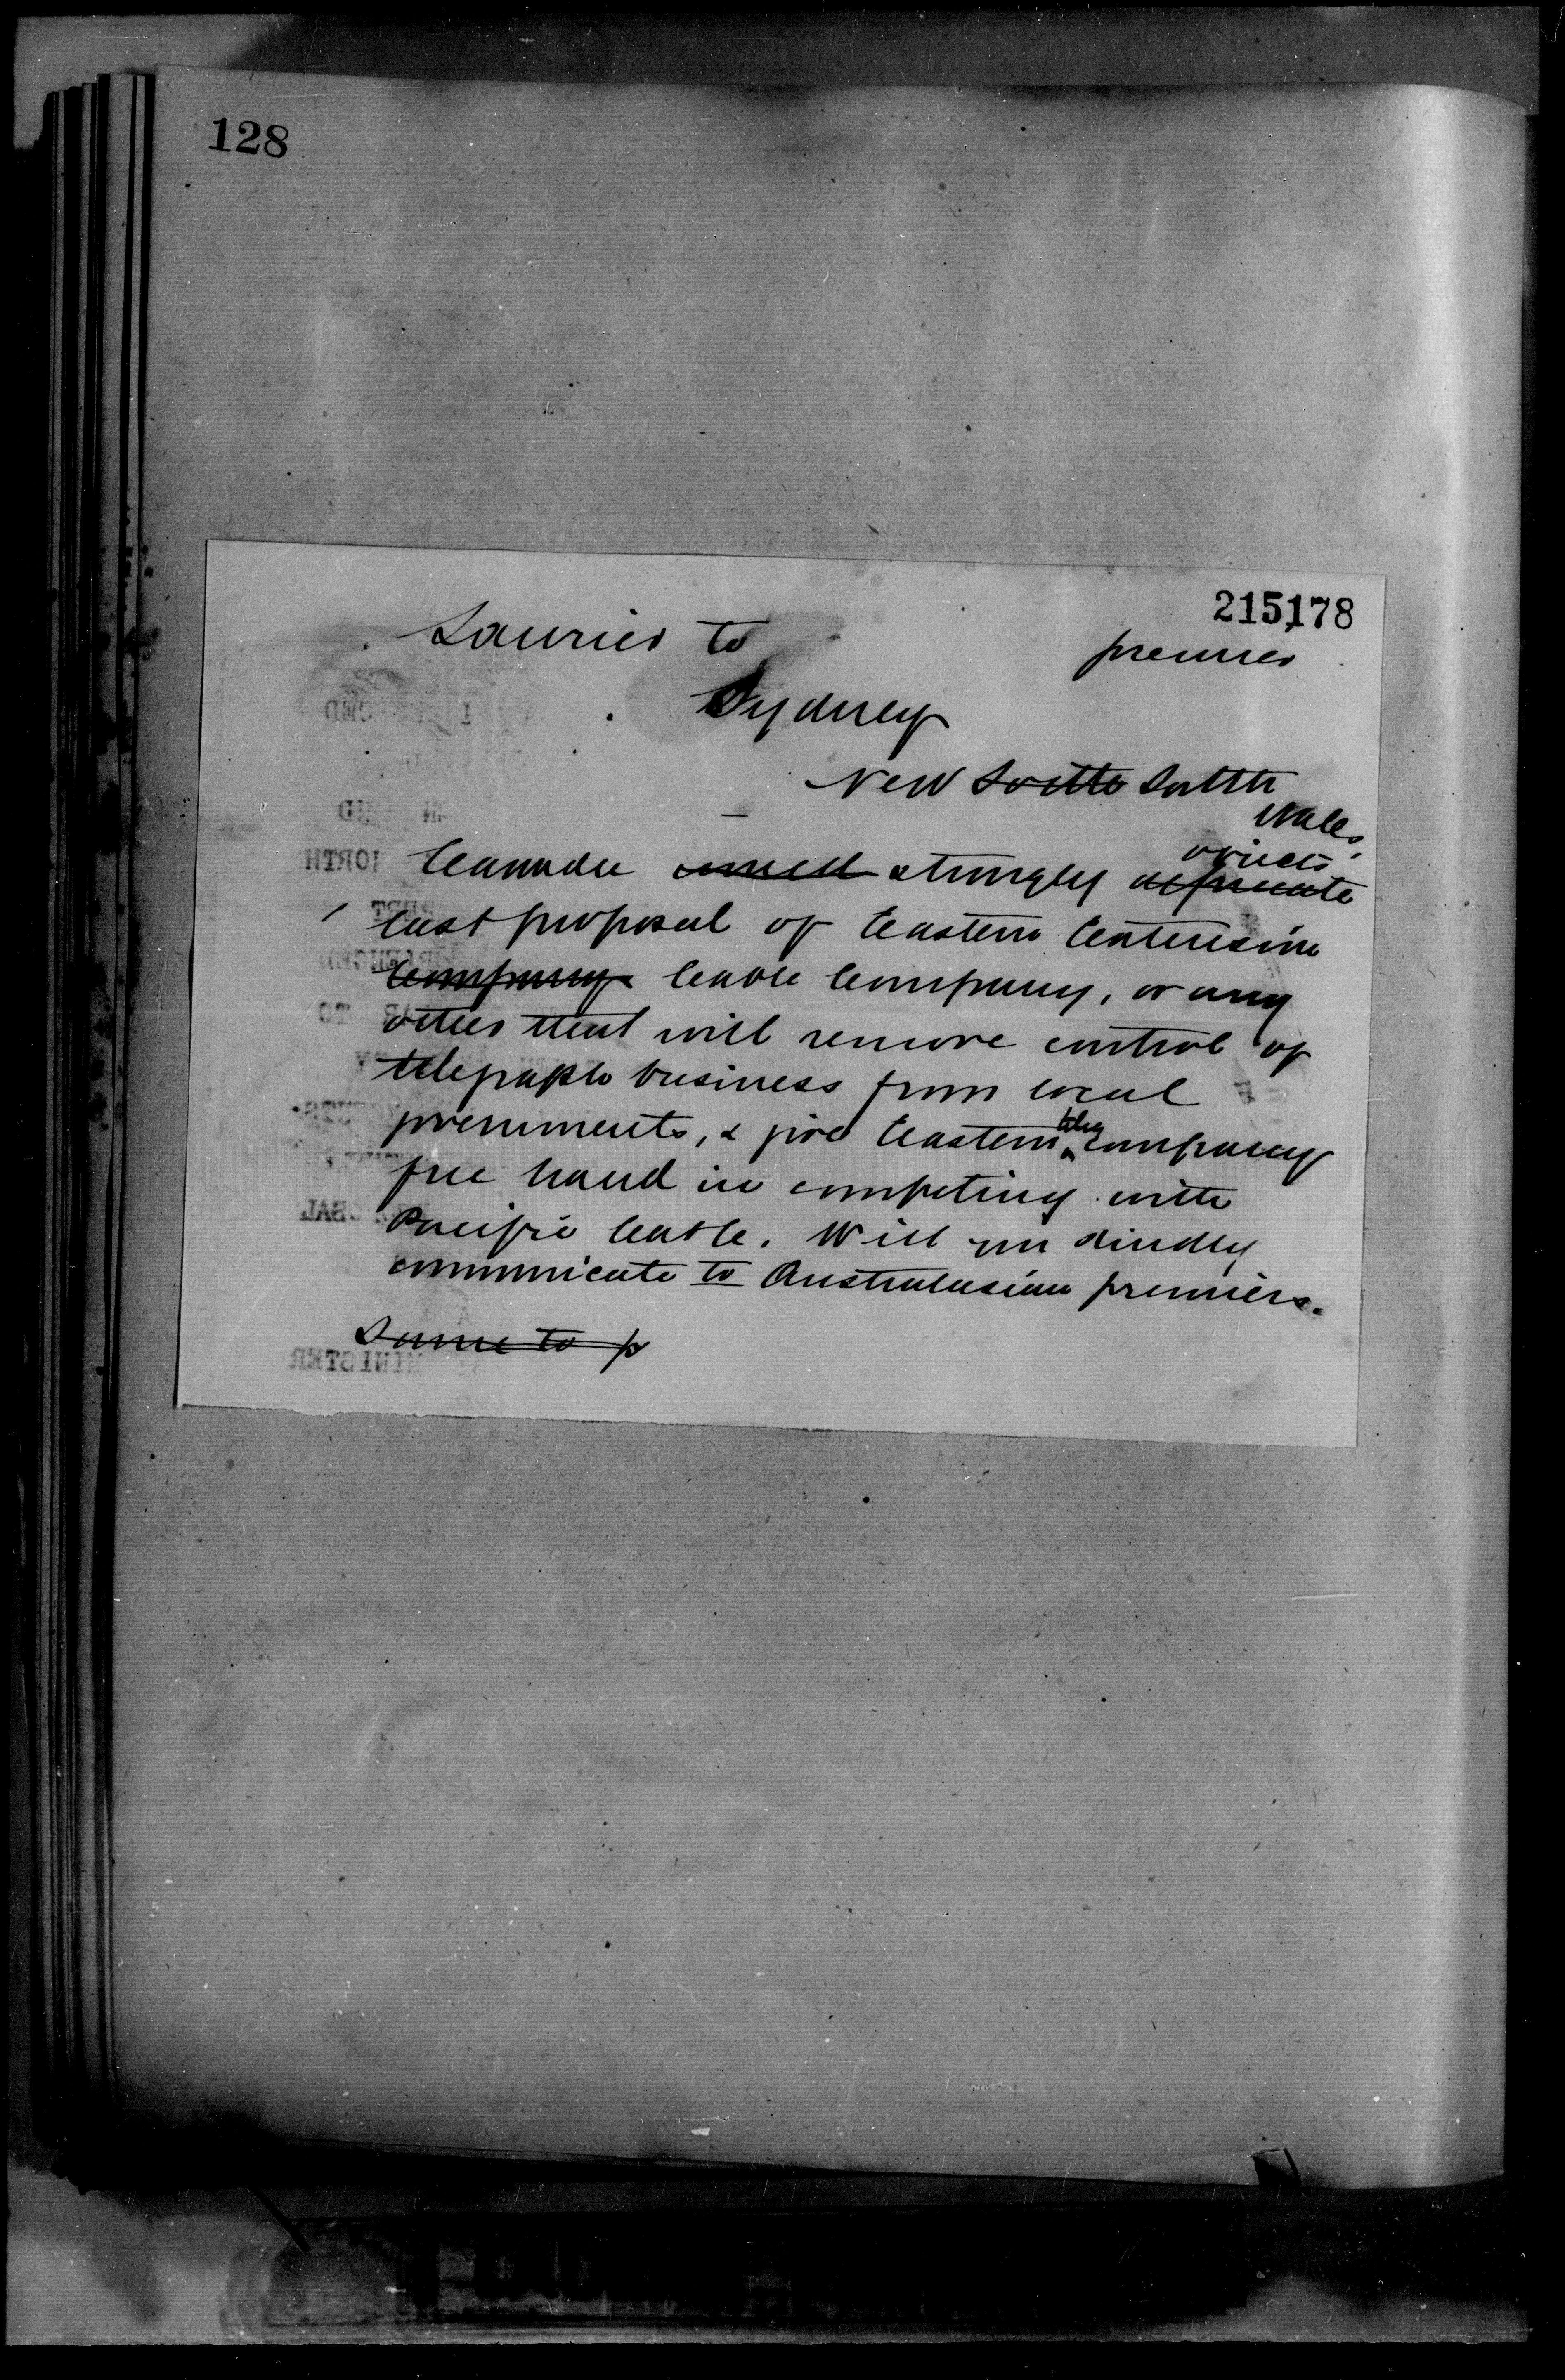 128
215178
Laurier to
premier
Sydney
New Soutth South
Wales
objects
Canada would strongly deprecate
last proposal of Eastern Extension
Company Cable Company, or any
other that will remove control of
telegraph business from local
governments, & give Eastern company
free hand in competing with
Pacific Cable. Will you kindly
communicate to Australasian premiers.
Same to p